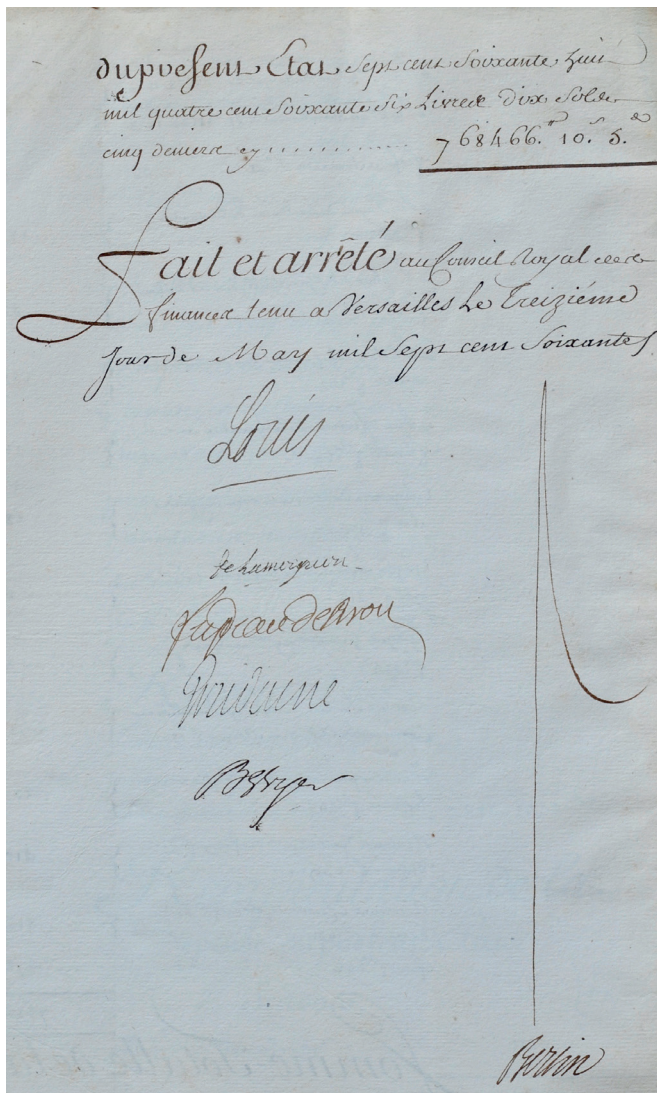 du present Etat Sept cent Soixante huit
mil quatre cent Soixante Six Livres dix Sols
cinq deniers cy ............ 768466.# 10.s 5.d
Fait et arrêté au Conseil Royal des
finances tenu a Versailles le Treiziéme
Jour de May mil Sept cent Soixante
Louis
de Lamoignon
Feydeau de Brou
Berryer
Bertin